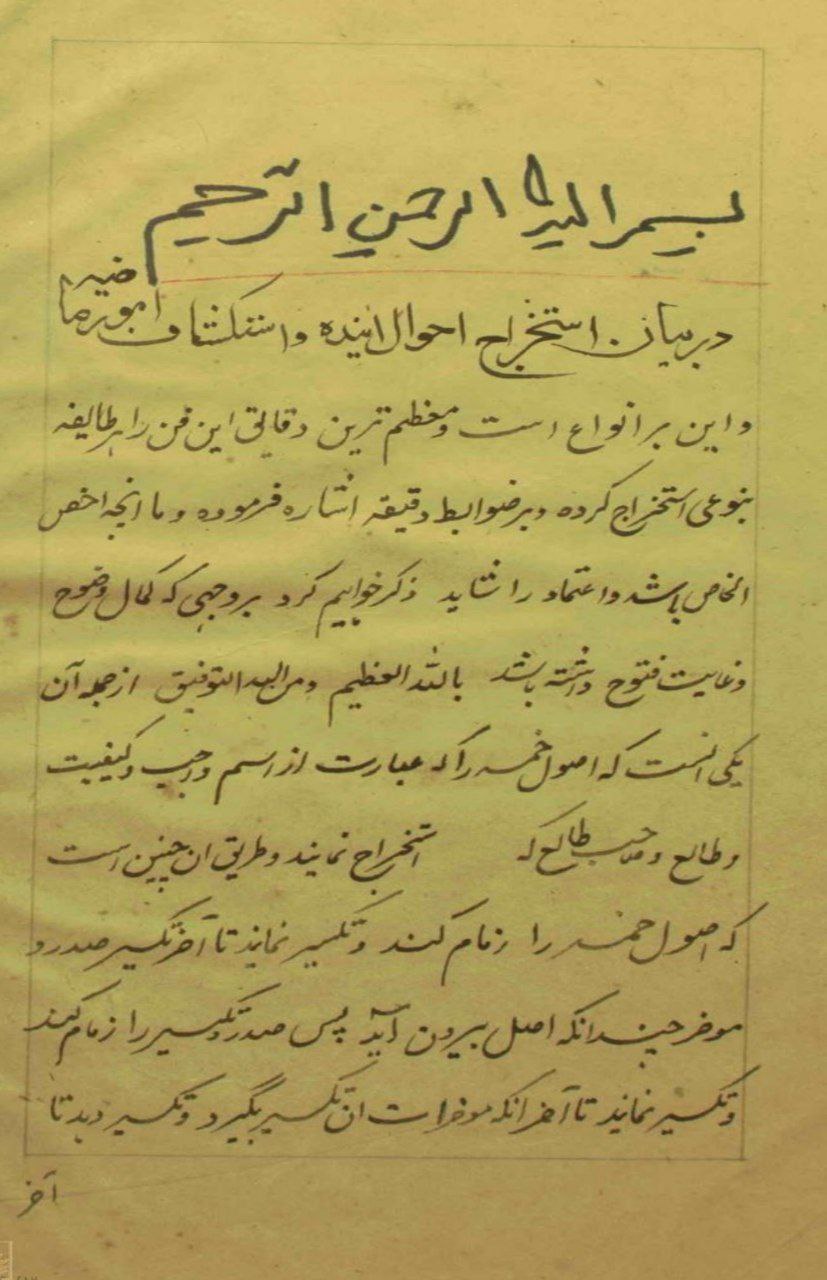 بسم الله الرحمن الرحیم
در بیان استخراج احوال اینده و استکشاف امور ماضیه
و این بر انواع است و معظم ترین دقایق این فن را هر طایفه
بنوعی استخراج کرده و بر ضوابط دقیقه اشاره فرموده و ما انچه اخص
الخاص باشد و اعتماد را شاید ذکر خواهیم کرد بر وجهی که کمال وضوح
و غایت فتوح داشته باشد بالله العظیم و من الیه التوفیق از جمله آن
یکی انست که اصول خمسه را که عبارت از اسم و اجب و کیفیت
و طالع و صاحب طالع که استخراج نمایند و طریق ان چنین است
که اصول خمسه را زمام کنند و تکسیر نمایند تا آخر تکسیر صدر و
موخر چندانکه اصل بیرون آید پس صدر تکسیر را زمام کنند
و تکسیر نمایند تا آخر انکه موخرات ان تکسیر بگیرد و تکسیر دهد تا
آخر